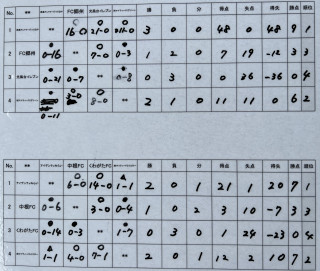 No. FC蘇州 勝 負 分 得点 失点 得失 勝点 順位
1 ** 16-0 21-0 11-0 3 0 0 48 0 48 9 1
2 FC蘇州 0-16 ** 7-0 0-3 1 2 0 7 19 -12 3 3
3 0-21 0-7 ** 0-8 0 3 0 0 36 -36 0 4
4 0-11 3-0 8-0 ** 2 1 0 11 11 0 6 2
No. 中根FC くわがたFC 勝 負 分 得点 失点 得失 勝点 順位
1 ** 6-0 14-0 1-1 2 0 1 21 1 20 7 1
2 中根FC 0-6 ** 3-0 0-4 1 0 2 3 10 -7 3 3
3 くわがたFC 0-14 0-3 ** 1-7 0 3 0 1 24 -23 0 4
4 1-1 4-0 7-1 ** 2 0 1 12 2 10 7 2